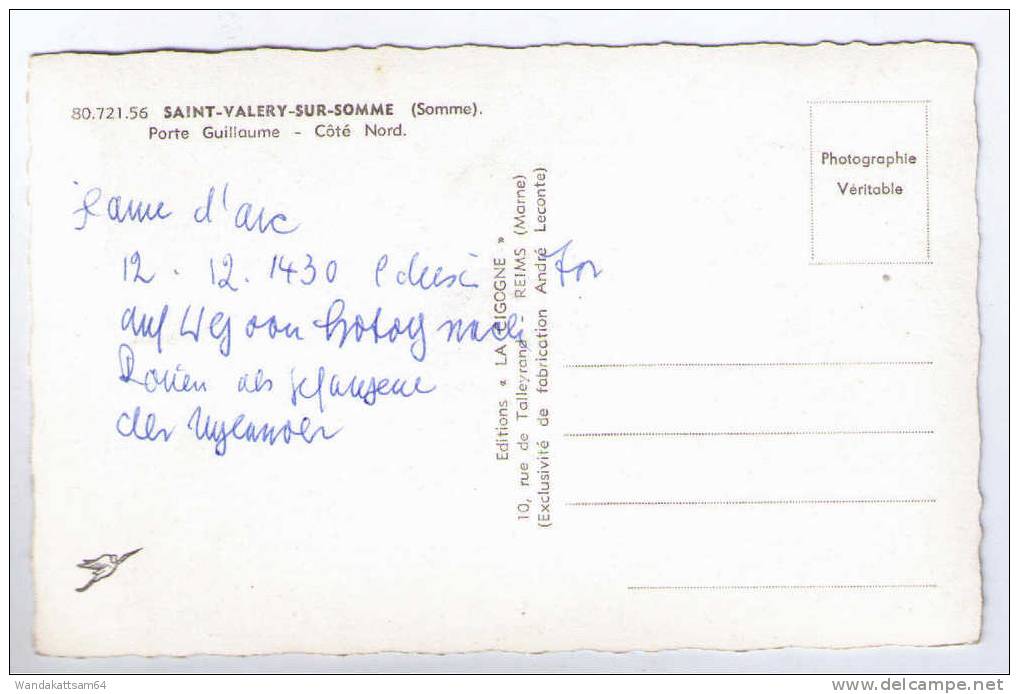 80.721.56 SAINT-VALERY-SUR-SOMME (Somme).
Porte Guillaume - Côté Nord.
Photographie
Véritable
Jeanne d'arc
12. 12. 1430 Tor
auf Weg von nach
Rouen als gefangene
der Engländer
Editions « LA CIGOGNE »
10, rue de Talleyrand - REIMS (Marne)
(Exclusivité de fabrication André Leconte)
Wandakattsam64
delcampe.net